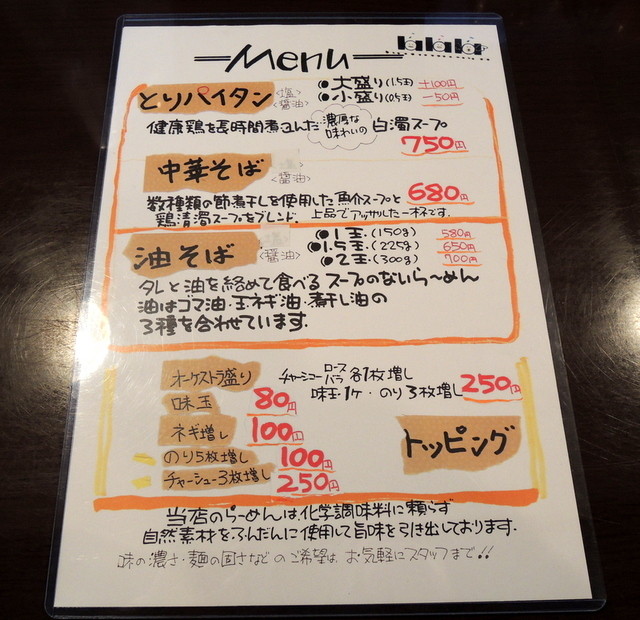 Menu
lalala
とりパイタン
<塩>
<醤油>
●大盛り(1.5玉) +100円
●小盛り(0.5玉) -50円
健康鶏を長時間煮込んだ 濃厚な味わいの 白濁スープ
750円
中華そば
<醤油>
680円
数種類の節煮干しを使用した魚介スープと
鶏清濁スープをブレンド. 上品でアッサリした一杯です.
油そば
<醤油>
●1玉.(150g) 580円
●1.5玉.(225g) 650円
●2玉.(300g) 700円
タレと油を絡めて食べるスープのないら〜めん
油はゴマ油・玉ネギ油・煮干し油の
3種を合わせています.
オーケストラ盛り
チャーシューロースバラ各1枚増し
味玉・1ヶ・のり3枚増し 250円
味玉 80円
ネギ増し 100円
のり5枚増し 100円
チャーシュー3枚増し 250円
トッピング
当店のらーめんは、化学調味料に頼らず
自然素材をふんだんに使用して旨味を引き出しております.
味の濃さ・麺の固さなどのご希望は お気軽にスタッフまで!!